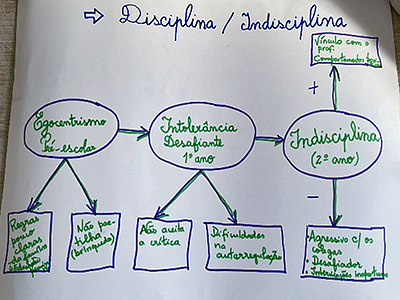 ⇒ Disciplina / Indisciplina
Vínculo com o
prof.
Comportamentos
+
Egocentrismo
Pré-escolar
Intolerância
Desafiante
1º ano
Indisciplina
(2º ano)
−
Regras
pouco
claras
Não par-
tilha
(brinquedo)
Não aceita
a crítica
Dificuldades
na
autorregulação
Agressivo c/ os
colegas
• Desafiador
• Interrupções